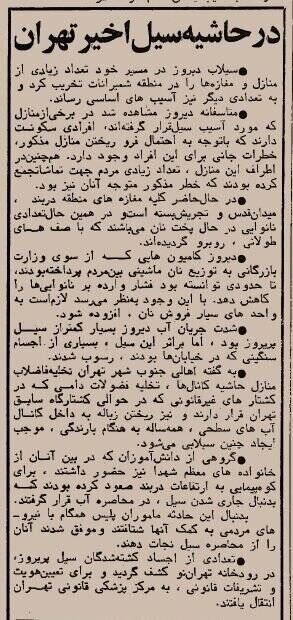 در حاشیه سیل اخیر تهران
●سیلاب دیروز در مسیر خود تعداد زیادی از
منازل و مغازه‌ها را در منطقه شمیرانات تخریب کرد و
به تعدادی دیگر نیز آسیب های اساسی رساند.
●متاسفانه دیروز مشاهده شد در برخی‌ازمنازل
که مورد آسیب سیل‌قرار گرفته‌اند، افرادی سکونت
دارند که باتوجه به احتمال فرو ریختن منازل مذکور،
خطرات جانی برای این افراد وجود دارد. همچنین‌در
اطراف این منازل ، تعداد زیادی مردم جهت تماشاتجمع
کرده بودند که خطر مذکور متوجه آنان نیز بود.
●در حال‌حاضر کلیه مغازه های منطقه دربند ،
میدان‌قدس و تجریش‌بسته است‌و در همین حال‌تعدادی
نانوایی در حال پخت نان می‌باشند که با صف های
طولانی ، روبرو گردیده‌اند.
●دیروز کامیون هایی کـه از سوی وزارت
بازرگانی به توزیع نان ماشینی بین‌مردم پرداخته‌بودند،
تا حدودی توانسته بود فشار وارده بر نانوایی‌ها را
کاهش دهد. با این وجود به‌نظر می‌رسد لازم‌است به
واحد های سیار فروش نان ، افزوده شود.
●شدت جریان آب دیروز بسیار کمتراز سیـل
پریروز بود ، اما براثر این سیل ، بسیاری از اجسام
سنگینی که در خیابان‌ها بودند ، رسوب شدند.
●به گفته اهالی جنوب شهر تهران تخلیه‌فاضلاب
منازل حاشیه کانال‌ها ، تخلیه فضولات دامی کـه در
کشتار های غیرقانونی که در حوالی کشتارگاه سابق
تهران قرار دارند و نیز ریختن زباله به داخل کانال
آب های سطحی ، همه‌ساله به هنگام بارندگی ، موجب
ایجاد جنین سیلابی می‌شود.
●گروهی از دانش‌آموزان که در بین آنـان از
خانواده های معظم شهدا نیز حضور داشتند ، برای
کوهپیمایی به ارتفاعات دربند صعود کرده بودند کـه
بدنبال جاری شدن سیل ، در محاصره آب قرار گرفتند.
بدنبال این حادثه ماموران پلیس همگام با نیرو-
های مردمی به کمک آنها شتافتند وموفق شدند آنان
را از محاصره سیل نجات دهند.
●تعدادی از اجساد کشته‌شدگان سیل پریروز،
در رودخانه تهران‌نو کشف گردید و برای تعیین‌هویت
و تشریفات قانونی ، به مرکز پزشکی قانونی تهـران
انتقال یافتند.